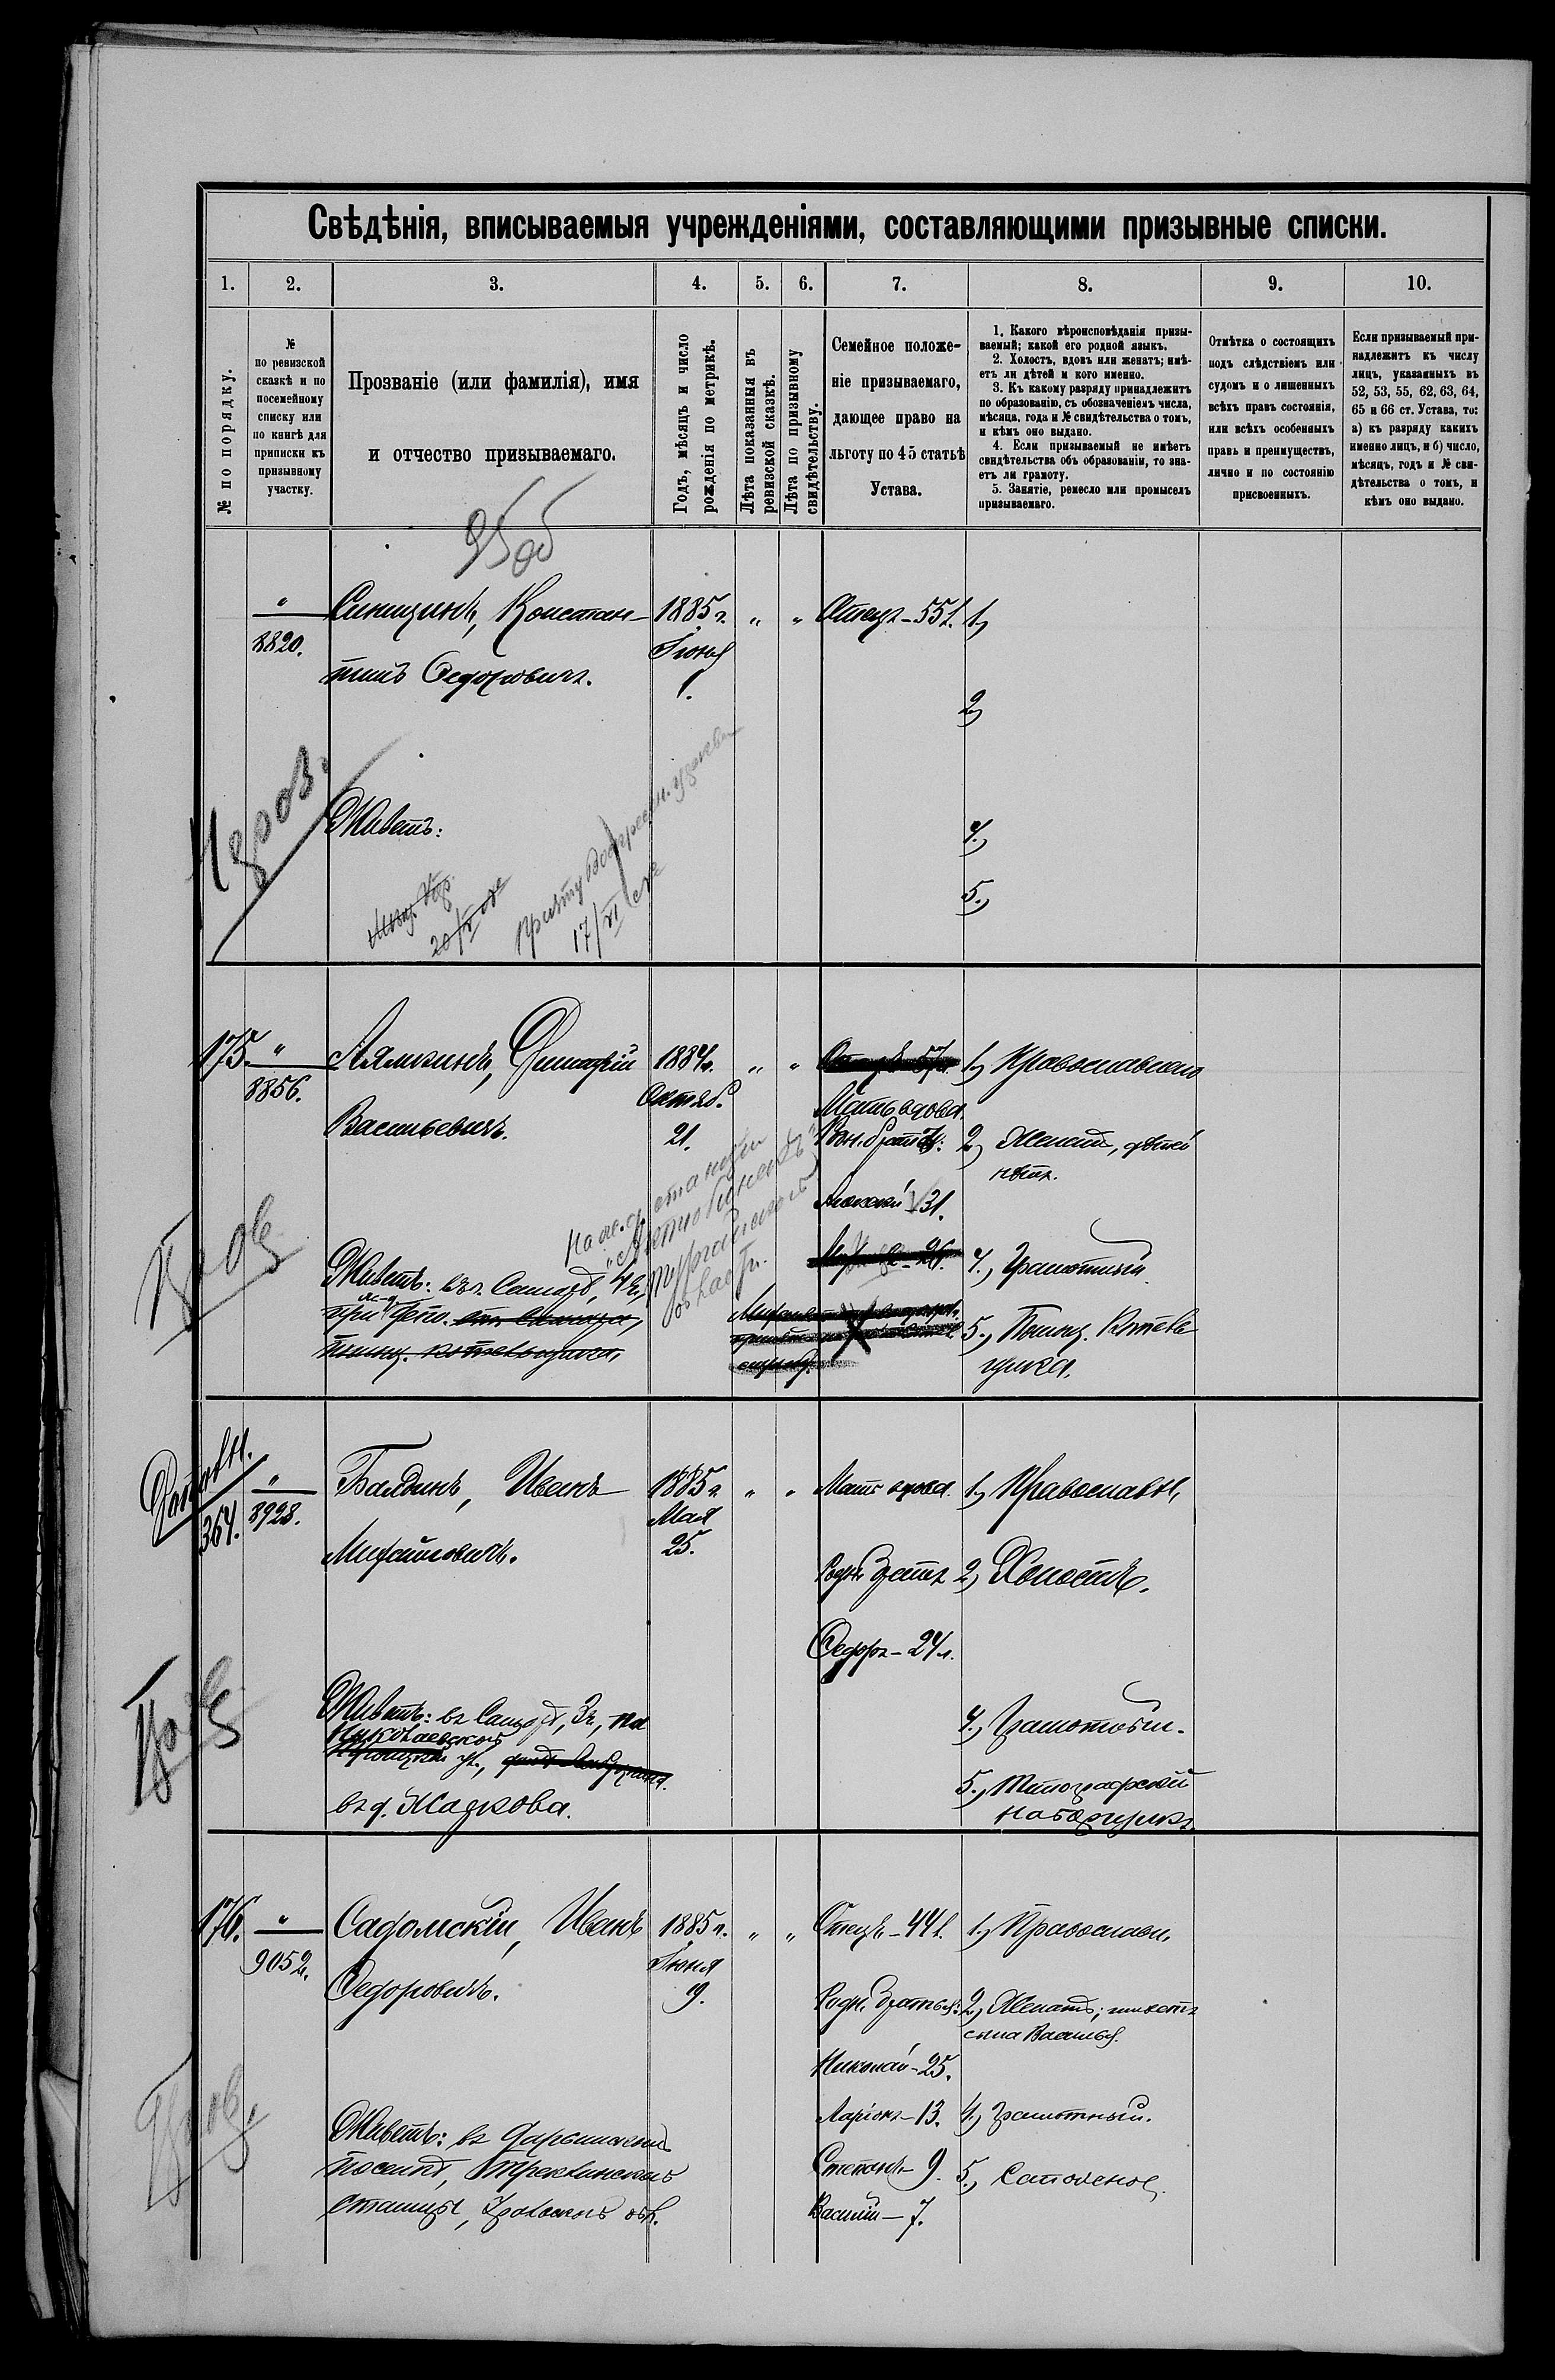 Свѣдѣнія, вписываемыя учрежденіями, составляющими призывные списки.
1. 2. 3. 4. 5. 6. 7. 8. 9. 10.
№ по порядку.
№
по ревизской
сказкѣ и по
посемейному
списку или
по книгѣ для
приписки къ
призывному
участку.
Прозваніе (или фамилія), имя
и отчество призываемаго.
Годъ, мѣсяцъ и число
рожденія по метрикѣ.
Лѣта показанныя въ
ревизской сказкѣ.
Лѣта по призывному
свидѣтельству.
Семейное положе-
ніе призываемаго,
дающее право на
льготу по 45 статьѣ
Устава.
1. Какого вѣроисповѣданія призы-
ваемый; какой его родной языкъ.
2. Холостъ, вдовъ или женатъ; имѣ-
етъ ли дѣтей и кого именно.
3. Къ какому разряду принадлежитъ
по образованію, съ обозначеніемъ числа,
мѣсяца, года и № свидѣтельства о томъ,
и кѣмъ оно выдано.
4. Если призываемый не имѣетъ
свидѣтельства объ образованіи, то зна-
етъ ли грамоту.
5. Занятіе, ремесло или промыселъ
призываемаго.
Отмѣтка о состоящихъ
подъ слѣдствіемъ или
судомъ и о лишенныхъ
всѣхъ правъ состоянія,
или всѣхъ особенныхъ
правъ и преимуществъ,
лично и по состоянію
присвоенныхъ.
Если призываемый при-
надлежитъ къ числу
лицъ, указанныхъ въ
52, 53, 55, 62, 63, 64,
65 и 66 ст. Устава, то:
а) къ разряду какихъ
именно лицъ, и б) число,
мѣсяцъ, годъ и № сви-
дѣтельства о томъ, и
кѣмъ оно выдано.
"
8820.
Синицинъ, Констан-
тинъ Федоровичъ.
1885 г.
Іюня
1.
" "
Отецъ - 55 л.
1,
2,
4.,
5.,
Живетъ:
17/VI
175. "
8856.
Лямкинъ, Димитрій
Васильевичъ.
1884 г.
Октяб.
21.
" "
Мать вдова.
Родн. братья:
Алексѣй 31.
1, Православнаго
2, Женатъ, дѣтей
нѣтъ.
4., Грамотный
5., Помощ. Котель
щика.
Живетъ: въ г. Самарѣ, 4 ч.,
при депо. ст. Самара,
помощ. котельщика,
364.
"
8928.
Балдинъ, Иванъ
Михайловичъ.
1885 г.
Мая
25.
" "
Мать вдова.
Родн. братъ
Федоръ - 24 л.
1, Православн,
2, Холостъ.
4., Грамотный.
5., Типографскій
наборщикъ.
Живетъ: въ Самарѣ, 3 ч., на
Николаевской
ул.,
въ д. Жадкова.
176. "
9052.
Садомскій, Иванъ
Федоровичъ.
1885 г.
Іюня
9.
" "
Отецъ - 44 л.
Родн. братья:
Николай - 25.
Ларіонъ - 13.
Степанъ - 9.
Василій - 7.
1., Православн.
2, Женатъ; имѣетъ
сына Василья.
4., Грамотный.
5., Сапожное.
Живетъ: въ Дарьинскомъ
поселкѣ, Трекинской
Станицы, Уральской обл.